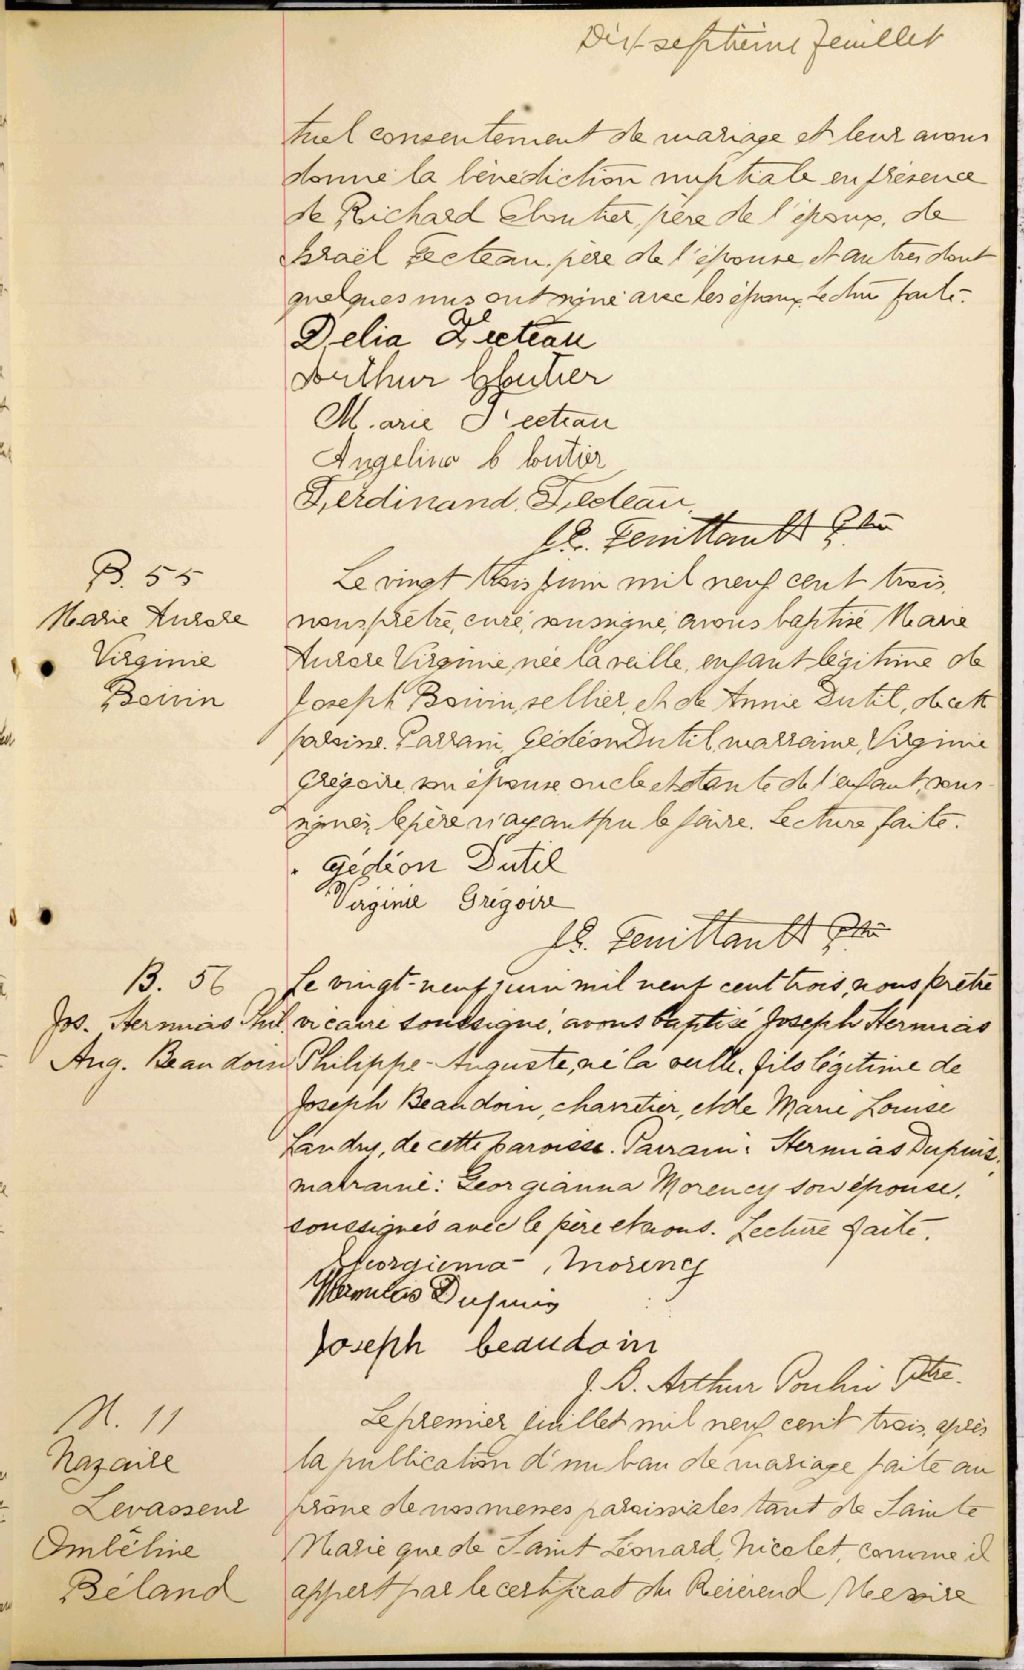 Dix-septième feuillet
tuel consentement de mariage et leur avons
donné la bénédiction nuptiale en présence
de Richard Cloutier, père de l'époux, de
Israël Fecteau, père de l'épouse, et autres dont
quelques uns ont signé avec les époux. Lecture faite.
Delia Fecteau
Arthur Cloutier
Marie Fecteau
Angelina Cloutier
Ferdinand Fecteau
J. E. Feuiltault Ptre
B. 55
Marie Aurore
Virginie
Boivin
Le vingt trois juin mil neuf cent trois,
nous prêtre, curé, soussigné, avons baptisé Marie
Aurore Virginie, née la veille, enfant légitime de
Joseph Boivin, sellier, et de Annie Dutil, de cette
paroisse. Parrain, Gédéon Dutil, marraine, Virginie
Grégoire, son épouse, oncle et tante de l'enfant, sous-
signés, le père n'ayant pu le faire. Lecture faite.
Gédéon Dutil
Virginie Grégoire
J. E. Feuiltault Ptre
B. 56
Jos. Hermias Phil.
Aug. Beaudoin
Le vingt-neuf juin mil neuf cent trois, nous prêtre
vicaire soussigné, avons baptisé Joseph Hermias
Philippe-Auguste, né la veille, fils légitime de
Joseph Beaudoin, charretier, et de Marie Louise
Landry, de cette paroisse. Parrain: Hermias Dupuis,
marraine: Georgianna Morency son épouse,
soussignés avec le père et nous. Lecture faite.
Georgiema Morency
Hermias Dupuis
Joseph beaudoin
J. B. Arthur Poulin Ptre.
M. 11
Nazaire
Levasseur
Ombéline
Béland
Le premier juillet mil neuf cent trois, après
la publication d'un ban de mariage faite au
prône de nos messes paroissiales tant de Sainte
Marie que de Saint Léonard, Nicolet, comme il
appert par le certificat du Révérend Messire